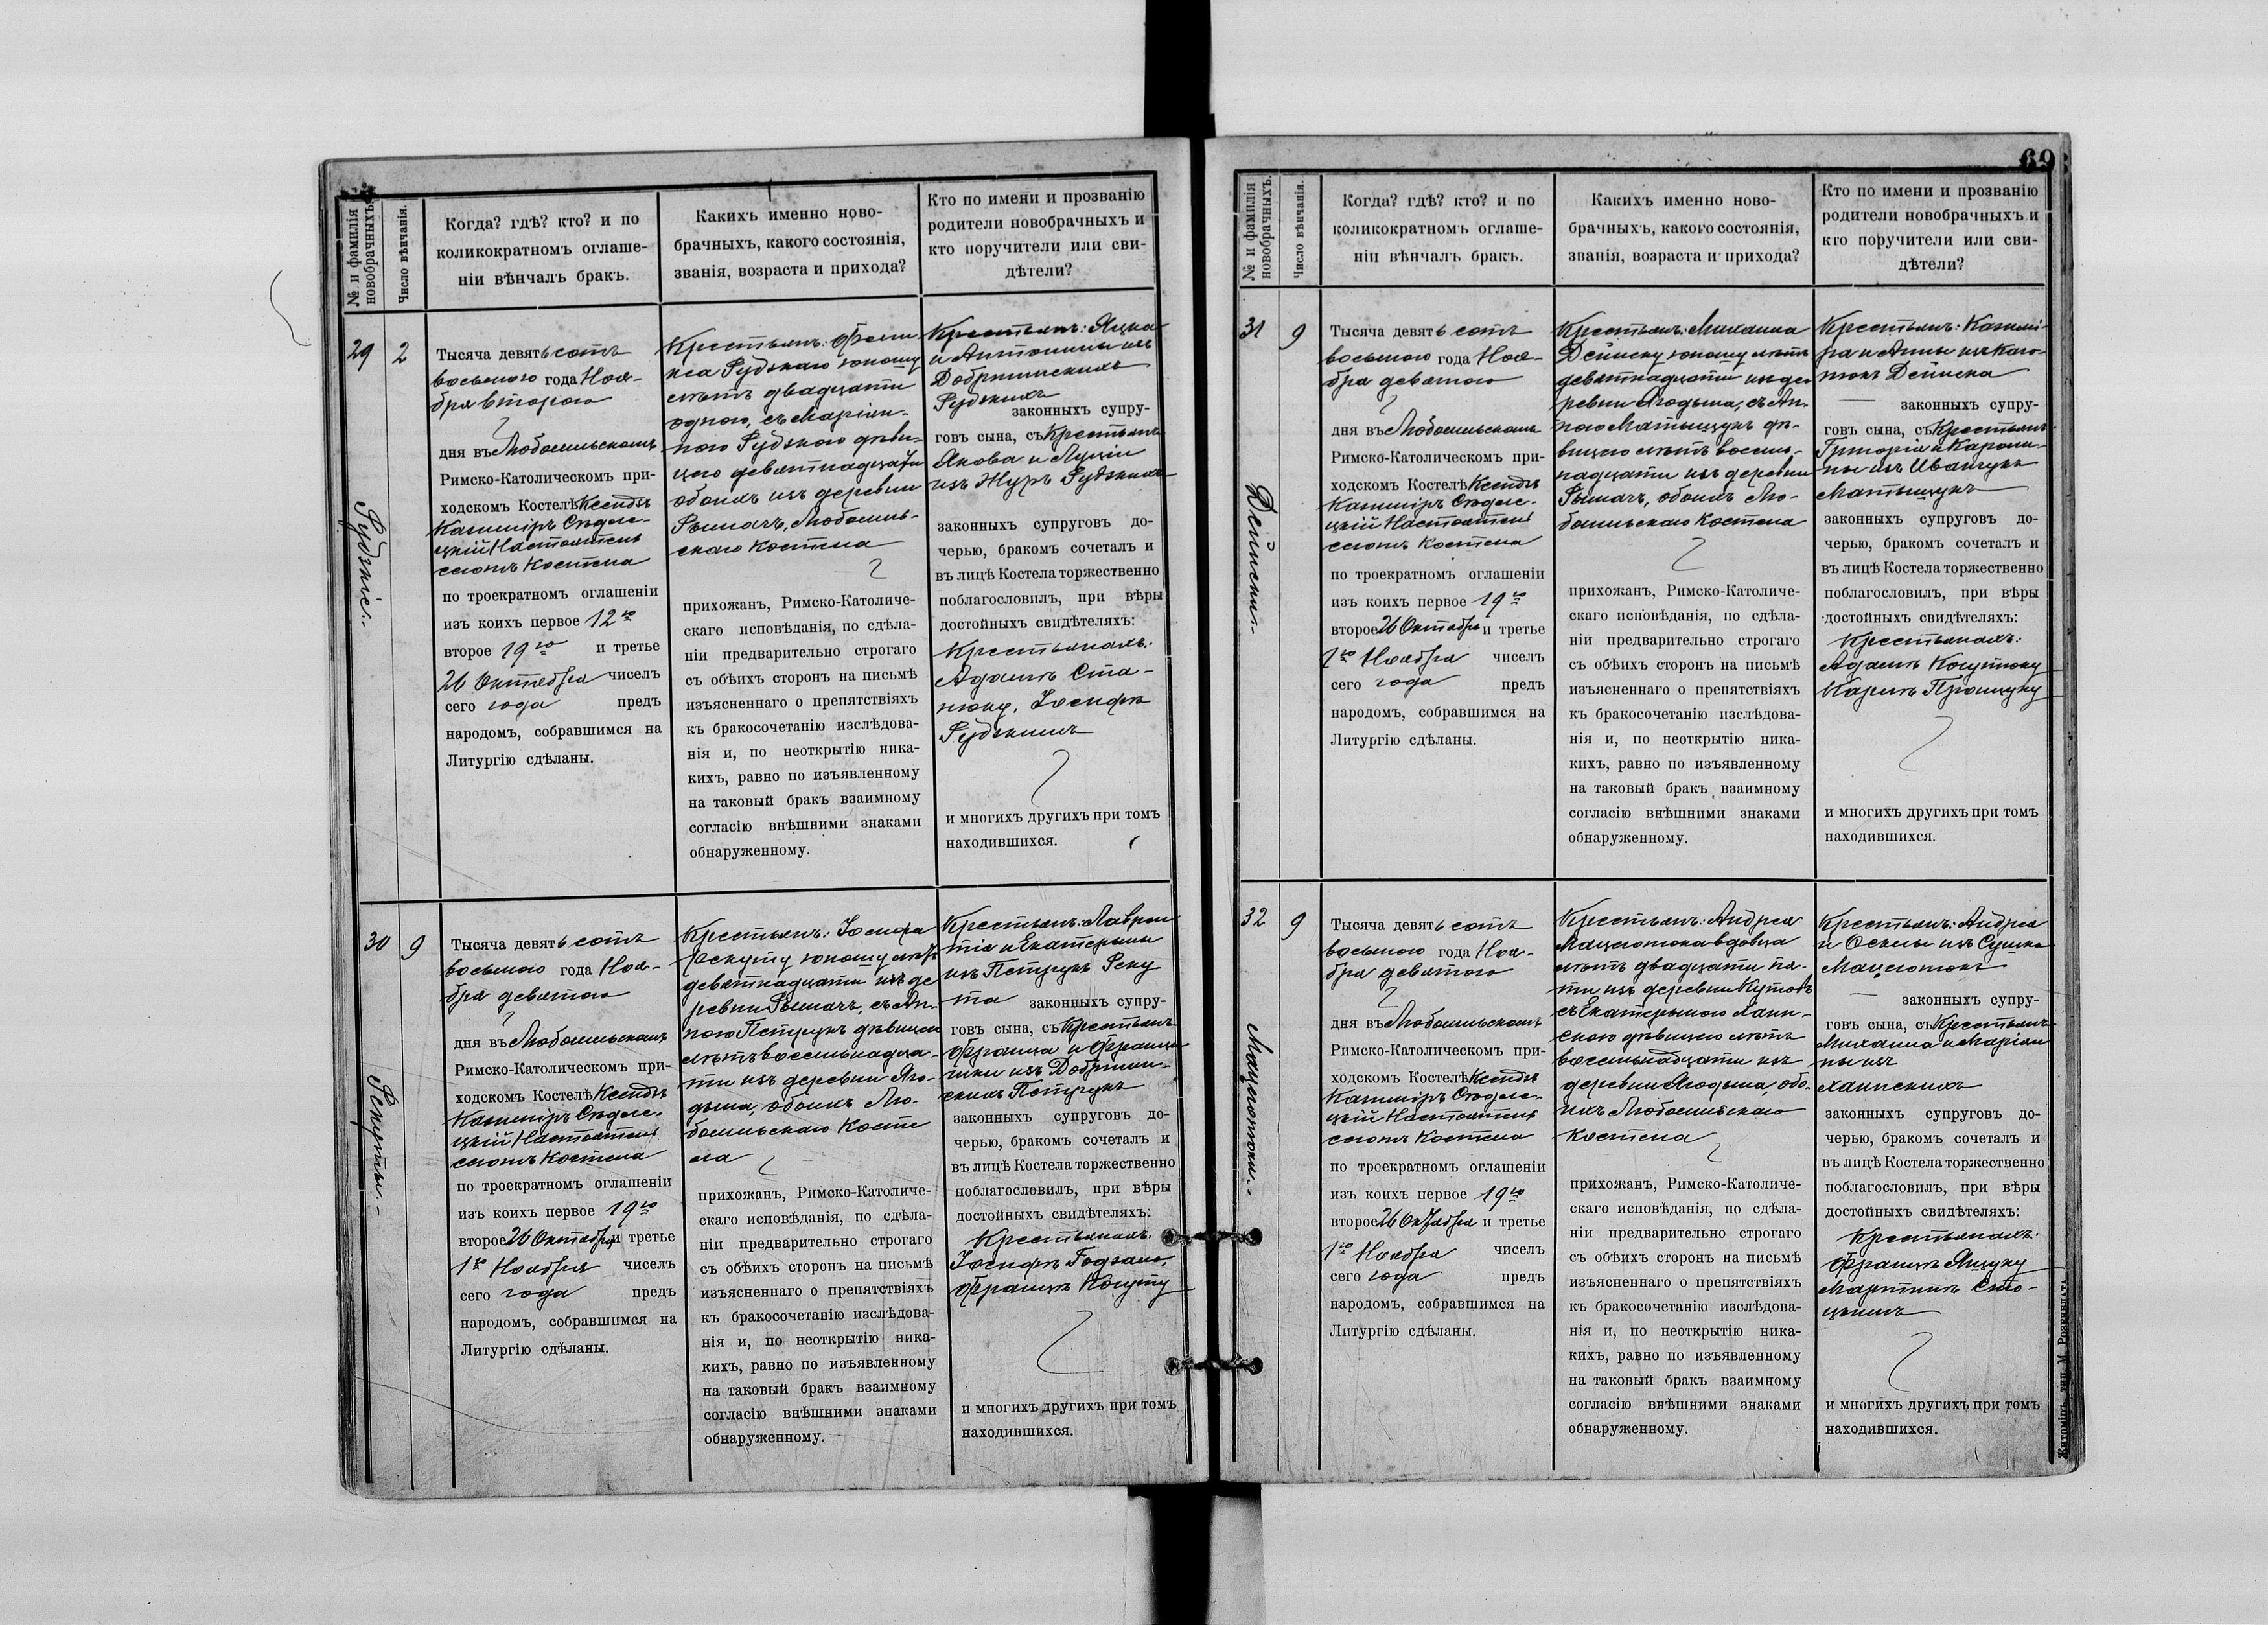 № и фамилія
новобрачныхъ.
Число вѣнчанія.
Когда? гдѣ? кто? и по
коликократномъ оглаше-
ніи вѣнчалъ бракъ.
Какихъ именно ново-
брачныхъ, какого состоянія,
званія, возраста и прихода?
Кто по имени и прозванію
родители новобрачныхъ и
кто поручители или сви-
дѣтели?
29
2
Рудзкіе
Тысяча девятьсотъ
восьмого года Ноя-
бря второго
дня въ Любомльскомъ
Римско-Католическомъ при-
ходскомъ Костелѣ Ксендзъ
Казиміръ
цкій Настоятель
сего Костела
по троекратномъ оглашеніи
изъ коихъ первое 12го
второе 19го и третье
26 Октября чиселъ
сего года предъ
народомъ, собравшимся на
Литургію сдѣланы.
Крестьянъ:
Рудзкаго юношу
лѣтъ двадцати
одного, съ Маріан-
ною Рудзкою дѣви-
цею девятнадцати
обоихъ изъ деревни
Рымачъ, Любомль-
скаго Костела
прихожанъ, Римско-Католиче-
скаго исповѣданія, по сдѣла-
ніи предварительно строгаго
съ обѣихъ сторонъ на письмѣ
изъясненнаго о препятствіяхъ
къ бракосочетанію изслѣдова-
нія и, по неоткрытію ника-
кихъ, равно по изъявленному
на таковый бракъ взаимному
согласію внѣшними знаками
обнаруженному.
Крестьянъ: Яцка
и Антонины изъ
Добрынскихъ
Рудзкихъ
законныхъ супру-
говъ сына, съ Крестьянъ
Якова и Луціи
изъ Журъ Рудзкихъ
законныхъ супруговъ до-
черью, бракомъ сочеталъ и
въ лицѣ Костела торжественно
поблагословилъ, при вѣры
достойныхъ свидѣтеляхъ:
Крестьянахъ:
Адамѣ Ста-
нюку, Іосифѣ
Рудзкимъ
и многихъ другихъ при томъ
находившихся.
30
9
Рекуты
Тысяча девятьсотъ
восьмого года Ноя-
бря девятого
дня въ Любомльскомъ
Римско-Католическомъ при-
ходскомъ Костелѣ Ксендзъ
Казиміръ
цкій Настоятель
сего Костела
по троекратномъ оглашеніи
изъ коихъ первое 19го
второе 26 Октября и третье
1го Ноября чиселъ
сего года предъ
народомъ, собравшимся на
Литургію сдѣланы.
Крестьянъ: Іосифа
Рекуту юношу лѣтъ
девятнадцати изъ де
ревни Рымачъ, съ Ан-
ною Петрукъ дѣвицею
лѣтъ восемьнадца-
ти изъ деревни Яго-
дына, обоихъ Лю-
бомльскаго Косте
ла
прихожанъ, Римско-Католиче-
скаго исповѣданія, по сдѣла-
ніи предварительно строгаго
съ обѣихъ сторонъ на письмѣ
изъясненнаго о препятствіяхъ
къ бракосочетанію изслѣдова-
нія и, по неоткрытію ника-
кихъ, равно по изъявленному
на таковый бракъ взаимному
согласію внѣшними знаками
обнаруженному.
Крестьянъ: Лаврен
тія и Екатерины
изъ Петрукъ Реку
та законныхъ супру-
говъ сына, съ Крестьянъ
Франца и Франци
шки изъ Добрын-
скихъ Петрукъ
законныхъ супруговъ до-
черью, бракомъ сочеталъ и
въ лицѣ Костела торжественно
поблагословилъ, при вѣры
достойныхъ свидѣтеляхъ:
Крестьянахъ:
Іосифѣ
Францѣ Когуту
и многихъ другихъ при томъ
находившихся.
69
№ и фамилія
новобрачныхъ.
Число вѣнчанія.
Когда? гдѣ? кто? и по
коликократномъ оглаше-
ніи вѣнчалъ бракъ.
Какихъ именно ново-
брачныхъ, какого состоянія,
званія, возраста и прихода?
Кто по имени и прозванію
родители новобрачныхъ и
кто поручители или сви-
дѣтели?
31
9
Дейнеки
Тысяча девятьсотъ
восьмого года Ноя-
бря девятого
дня въ Любомльскомъ
Римско-Католическомъ при-
ходскомъ Костелѣ Ксендзъ
Казиміръ
цкій Настоятель
сего Костела
по троекратномъ оглашеніи
изъ коихъ первое 19го
второе 26 Октября и третье
1го Ноября чиселъ
сего года предъ
народомъ, собравшимся на
Литургію сдѣланы.
Крестьянъ: Михаила
Дейнеку юношу лѣтъ
девятнадцати изъ де
ревни Ягодына, съ Ан-
ною Матыщукъ дѣ-
вицею лѣтъ восемь-
надцати изъ деревни
Рымачъ, обоихъ Лю-
бомльскаго Костела
прихожанъ, Римско-Католиче-
скаго исповѣданія, по сдѣла-
ніи предварительно строгаго
съ обѣихъ сторонъ на письмѣ
изъясненнаго о препятствіяхъ
къ бракосочетанію изслѣдова-
нія и, по неоткрытію ника-
кихъ, равно по изъявленному
на таковый бракъ взаимному
согласію внѣшними знаками
обнаруженному.
Крестьянъ: Казимі-
ра и Анны изъ
Дейнека
законныхъ супру-
говъ сына, съ Крестьянъ
Григорія и Кароли-
ны изъ Иванчукъ
Матыщукъ
законныхъ супруговъ до-
черью, бракомъ сочеталъ и
въ лицѣ Костела торжественно
поблагословилъ, при вѣры
достойныхъ свидѣтеляхъ:
Крестьянахъ:
Адамѣ
Карлѣ
и многихъ другихъ при томъ
находившихся.
32
9
Мацютоки
Тысяча девятьсотъ
восьмого года Ноя-
бря девятого
дня въ Любомльскомъ
Римско-Католическомъ при-
ходскомъ Костелѣ Ксендзъ
Казиміръ
цкій Настоятель
сего Костела
по троекратномъ оглашеніи
изъ коихъ первое 19го
второе 26 Октября и третье
1го Ноября чиселъ
сего года предъ
народомъ, собравшимся на
Литургію сдѣланы.
Крестьянъ: Андрея
вдовца
лѣтъ двадцати пя-
ти изъ деревни Кутовъ
съ Екатериною
скою дѣвицею лѣтъ
восемьнадцати изъ
деревни Ягодына, обо-
ихъ Любомльскаго
Костела
прихожанъ, Римско-Католиче-
скаго исповѣданія, по сдѣла-
ніи предварительно строгаго
съ обѣихъ сторонъ на письмѣ
изъясненнаго о препятствіяхъ
къ бракосочетанію изслѣдова-
нія и, по неоткрытію ника-
кихъ, равно по изъявленному
на таковый бракъ взаимному
согласію внѣшними знаками
обнаруженному.
Крестьянъ: Андрея
и изъ
законныхъ супру-
говъ сына, съ Крестьянъ
Михаила и Маріан
ны изъ
законныхъ супруговъ до-
черью, бракомъ сочеталъ и
въ лицѣ Костела торжественно
поблагословилъ, при вѣры
достойныхъ свидѣтеляхъ:
Крестьянахъ:
Францѣ Ящуку
Мартинѣ Сто-
цкимъ
и многихъ другихъ при томъ
находившихся.
Житоміръ, тип. М. Розенблата